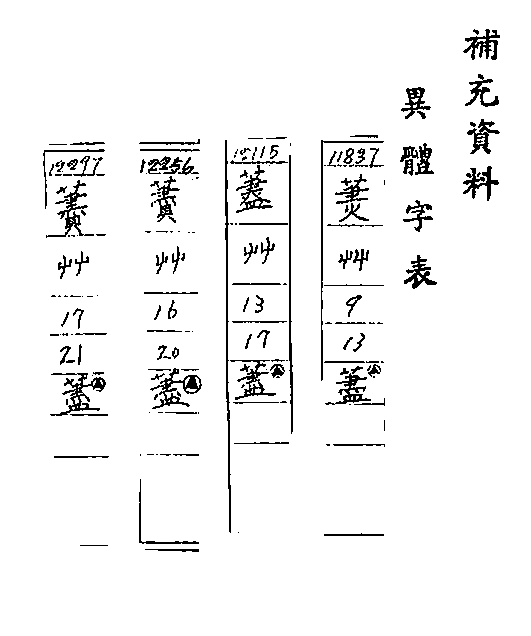 補充資料
異體字表
11837
艸
9
13
藎
12115
藎
艸
13
17
藎
12256
艸
16
20
藎
12297
艸
17
21
藎